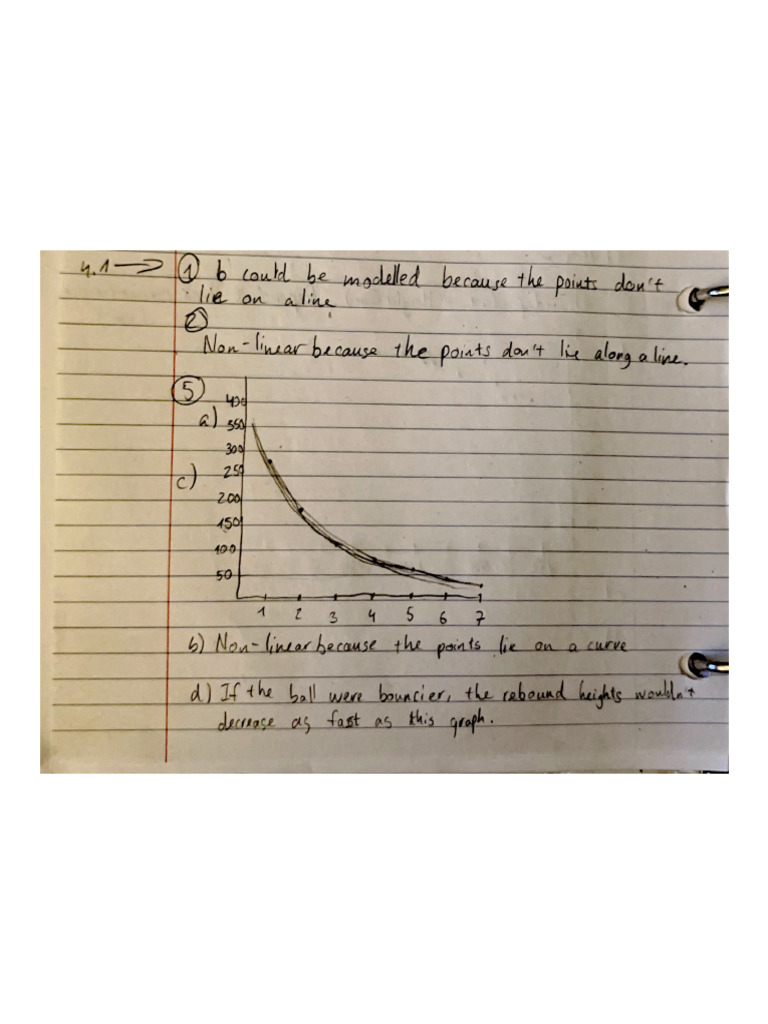 4.1 → ① b could be modelled because the points don't
lie on a line
②
Non-linear because the points don't lie along a line.
⑤
400
a) 350
300
c) 250
200
150
100
50
1 2 3 4 5 6 7
b) Non-linear because the points lie on a curve
d) If the ball were bouncier, the rebound heights wouldn't
decrease as fast as this graph.